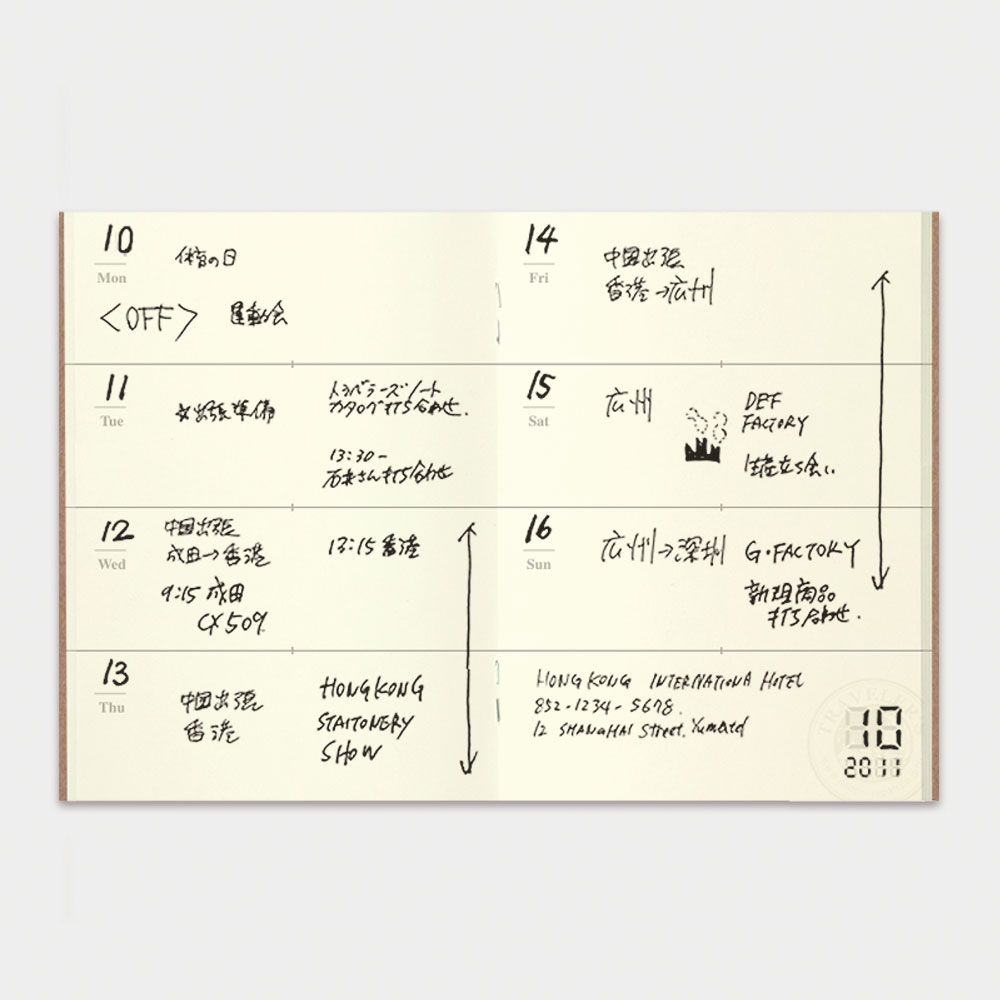 10
Mon
体育の日
<OFF> 運動会
11
Tue
出張準備
トラベラーズノート
カタログ打ち合わせ.
13:30-
石井さん打ち合わせ
12
Wed
中国出張
成田→香港
9:15 成田
CX509
13:15 香港
13
Thu
中国出張
香港
HONG KONG
STAITONERY
SHOW
14
Fri
中国出張
香港→広州
15
Sat
広州
DEF
FACTORY
生産立ち会い.
16
Sun
広州→深圳
G・FACTORY
新規商品
打ち合わせ.
HONG KONG INTERNATIONA HOTEL
852-1234-5678.
12 SHANGHAI Street. Yumatd
TRAVELER'S
10
2011